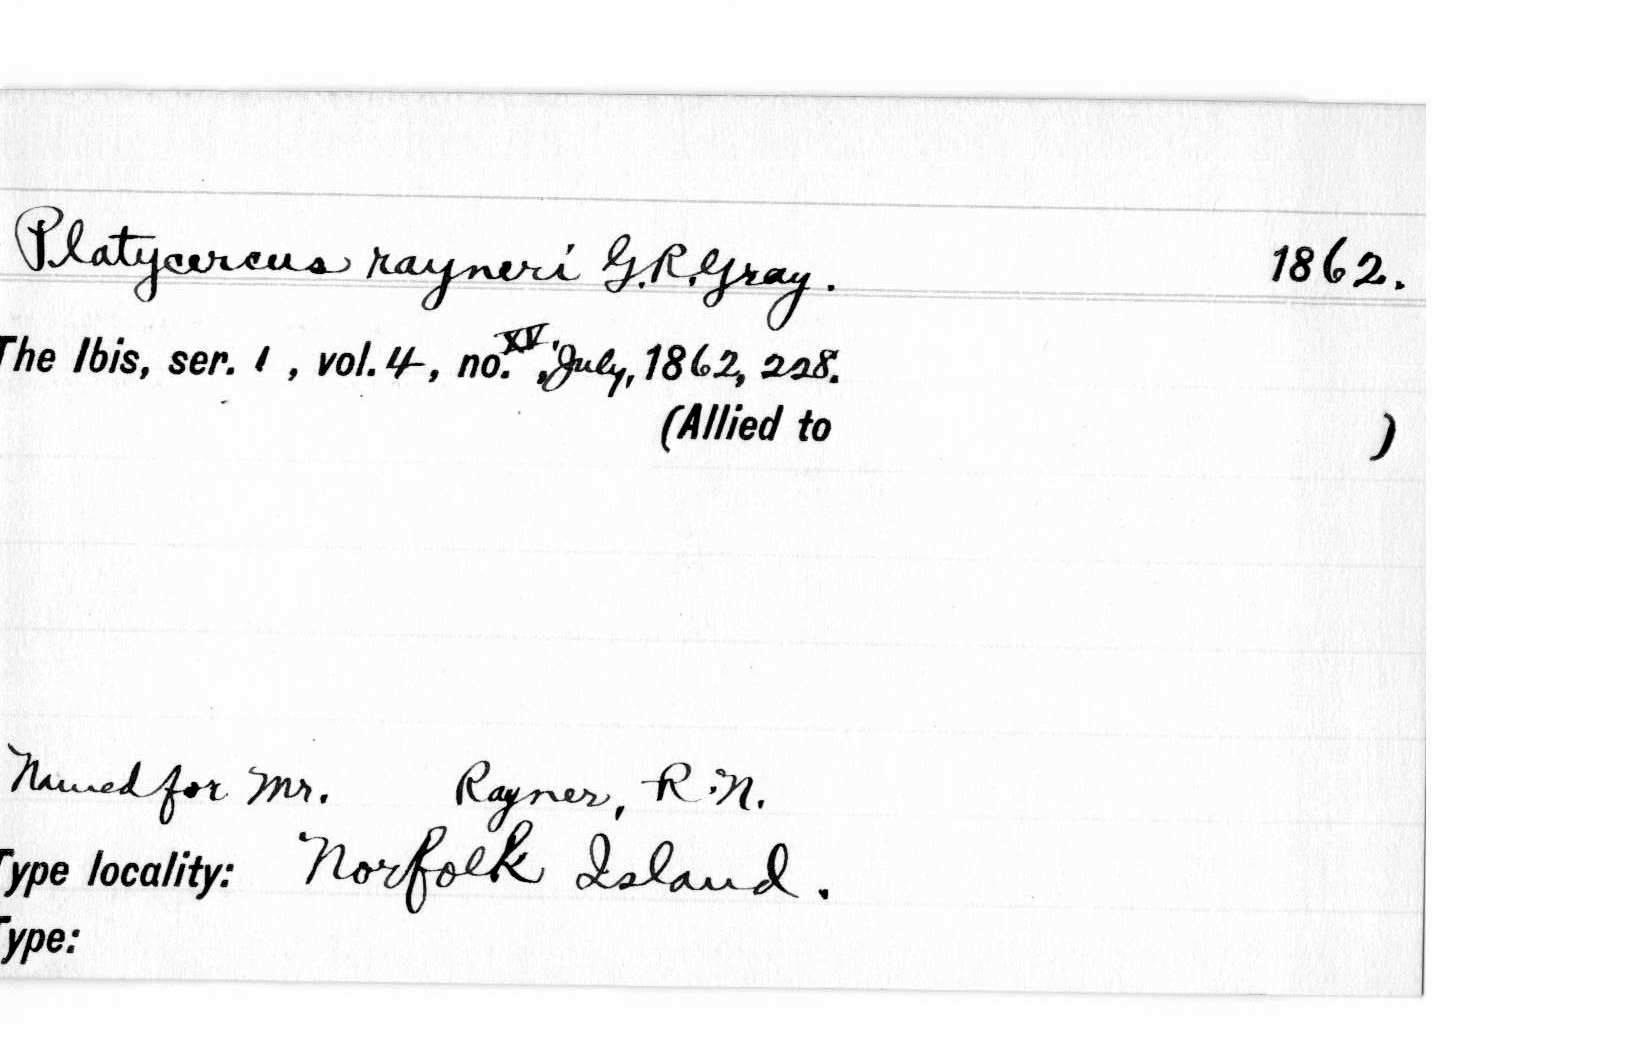 Platycercus rayneri G.R.Gray. 1862.
The Ibis, ser. 1, vol. 4, no. XV, July, 1862, 228.
(Allied to )
Named for Mr. Rayner, R.N.
Type locality: Norfolk Island.
Type: